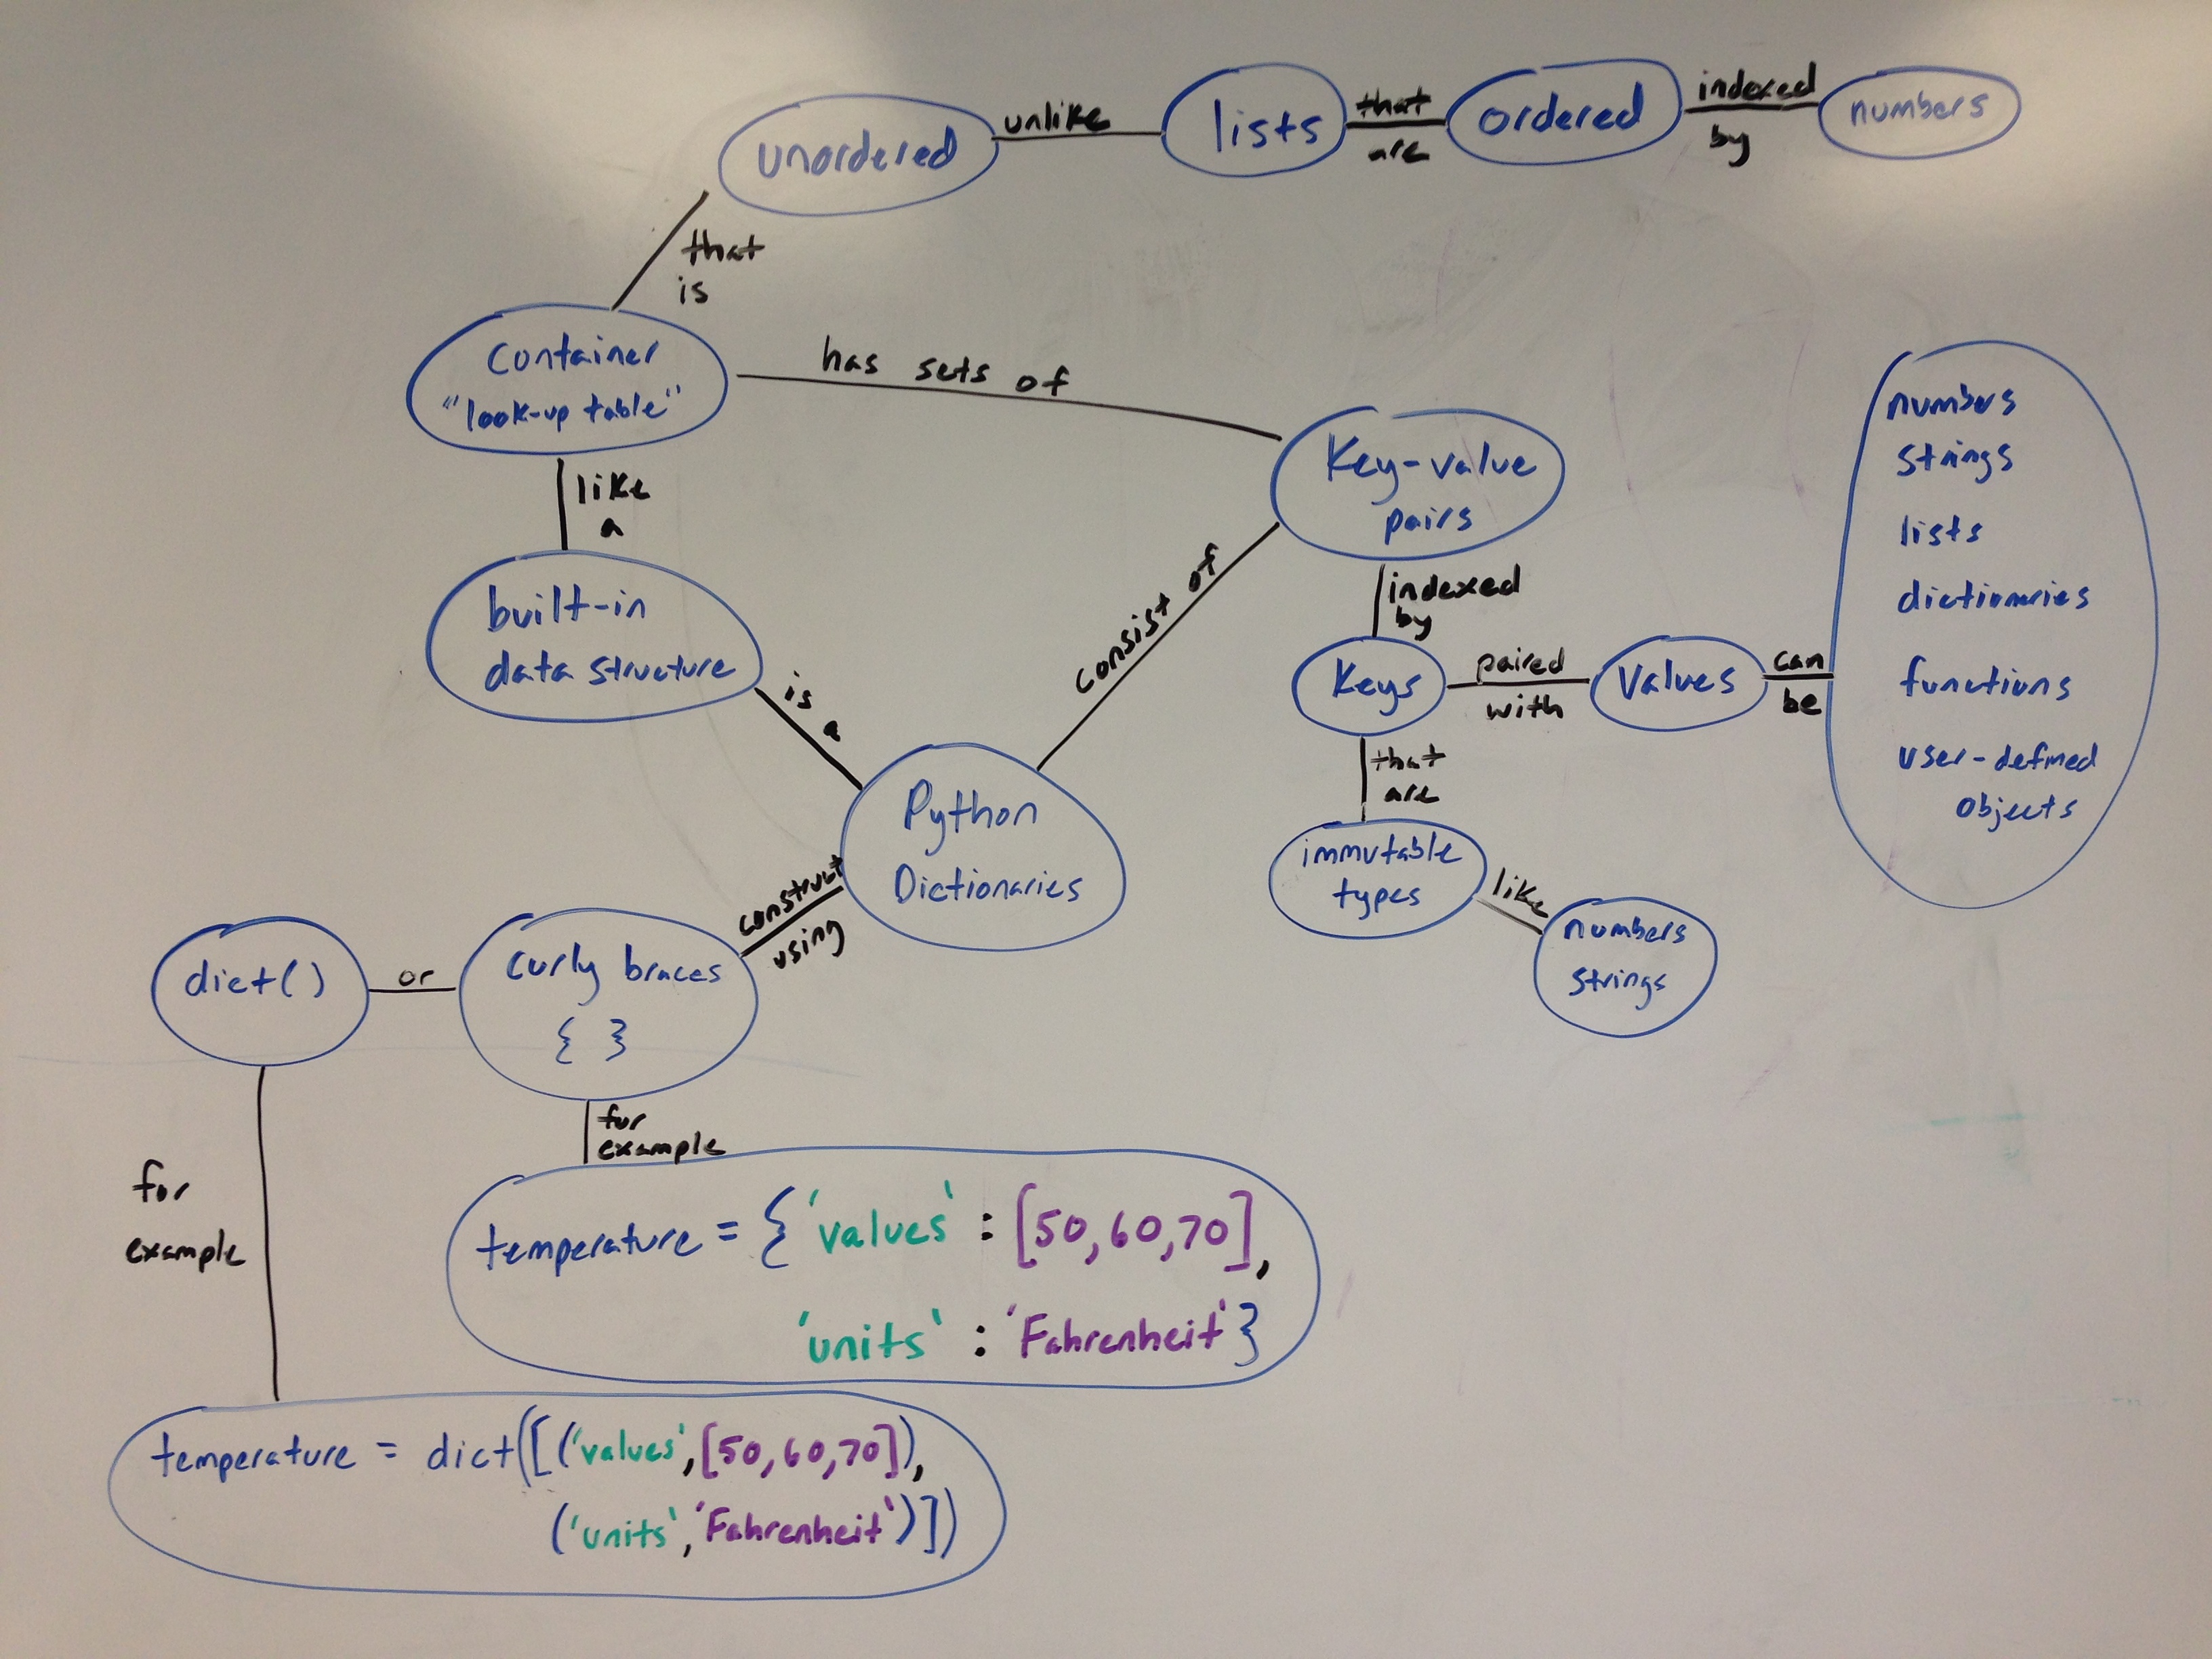 unordered
unlike
lists
that
are
ordered
indexed
by
numbers
that
is
Container
"look-up table"
has sets of
Key-value
pairs
like
a
built-in
data structure
is
a
consist of
Python
Dictionaries
indexed
by
Keys
paired
with
Values
can
be
numbers
strings
lists
dictionaries
functions
user-defined
objects
that
are
immutable
types
like
numbers
strings
construct
using
curly braces
{ }
or
dict()
for
example
temperature = { 'values' : [50,60,70],
'units' : 'Fahrenheit' }
for
example
temperature = dict([('values',[50,60,70]),
('units','Fahrenheit')])